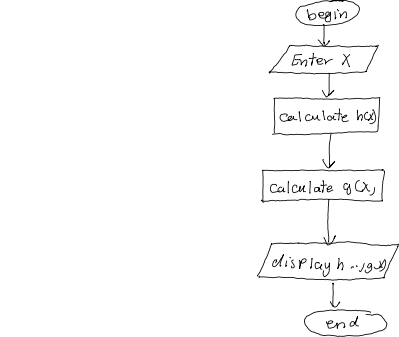 begin
Enter X
calculate h(x)
calculate g(x,
display h ..,g(x)
end